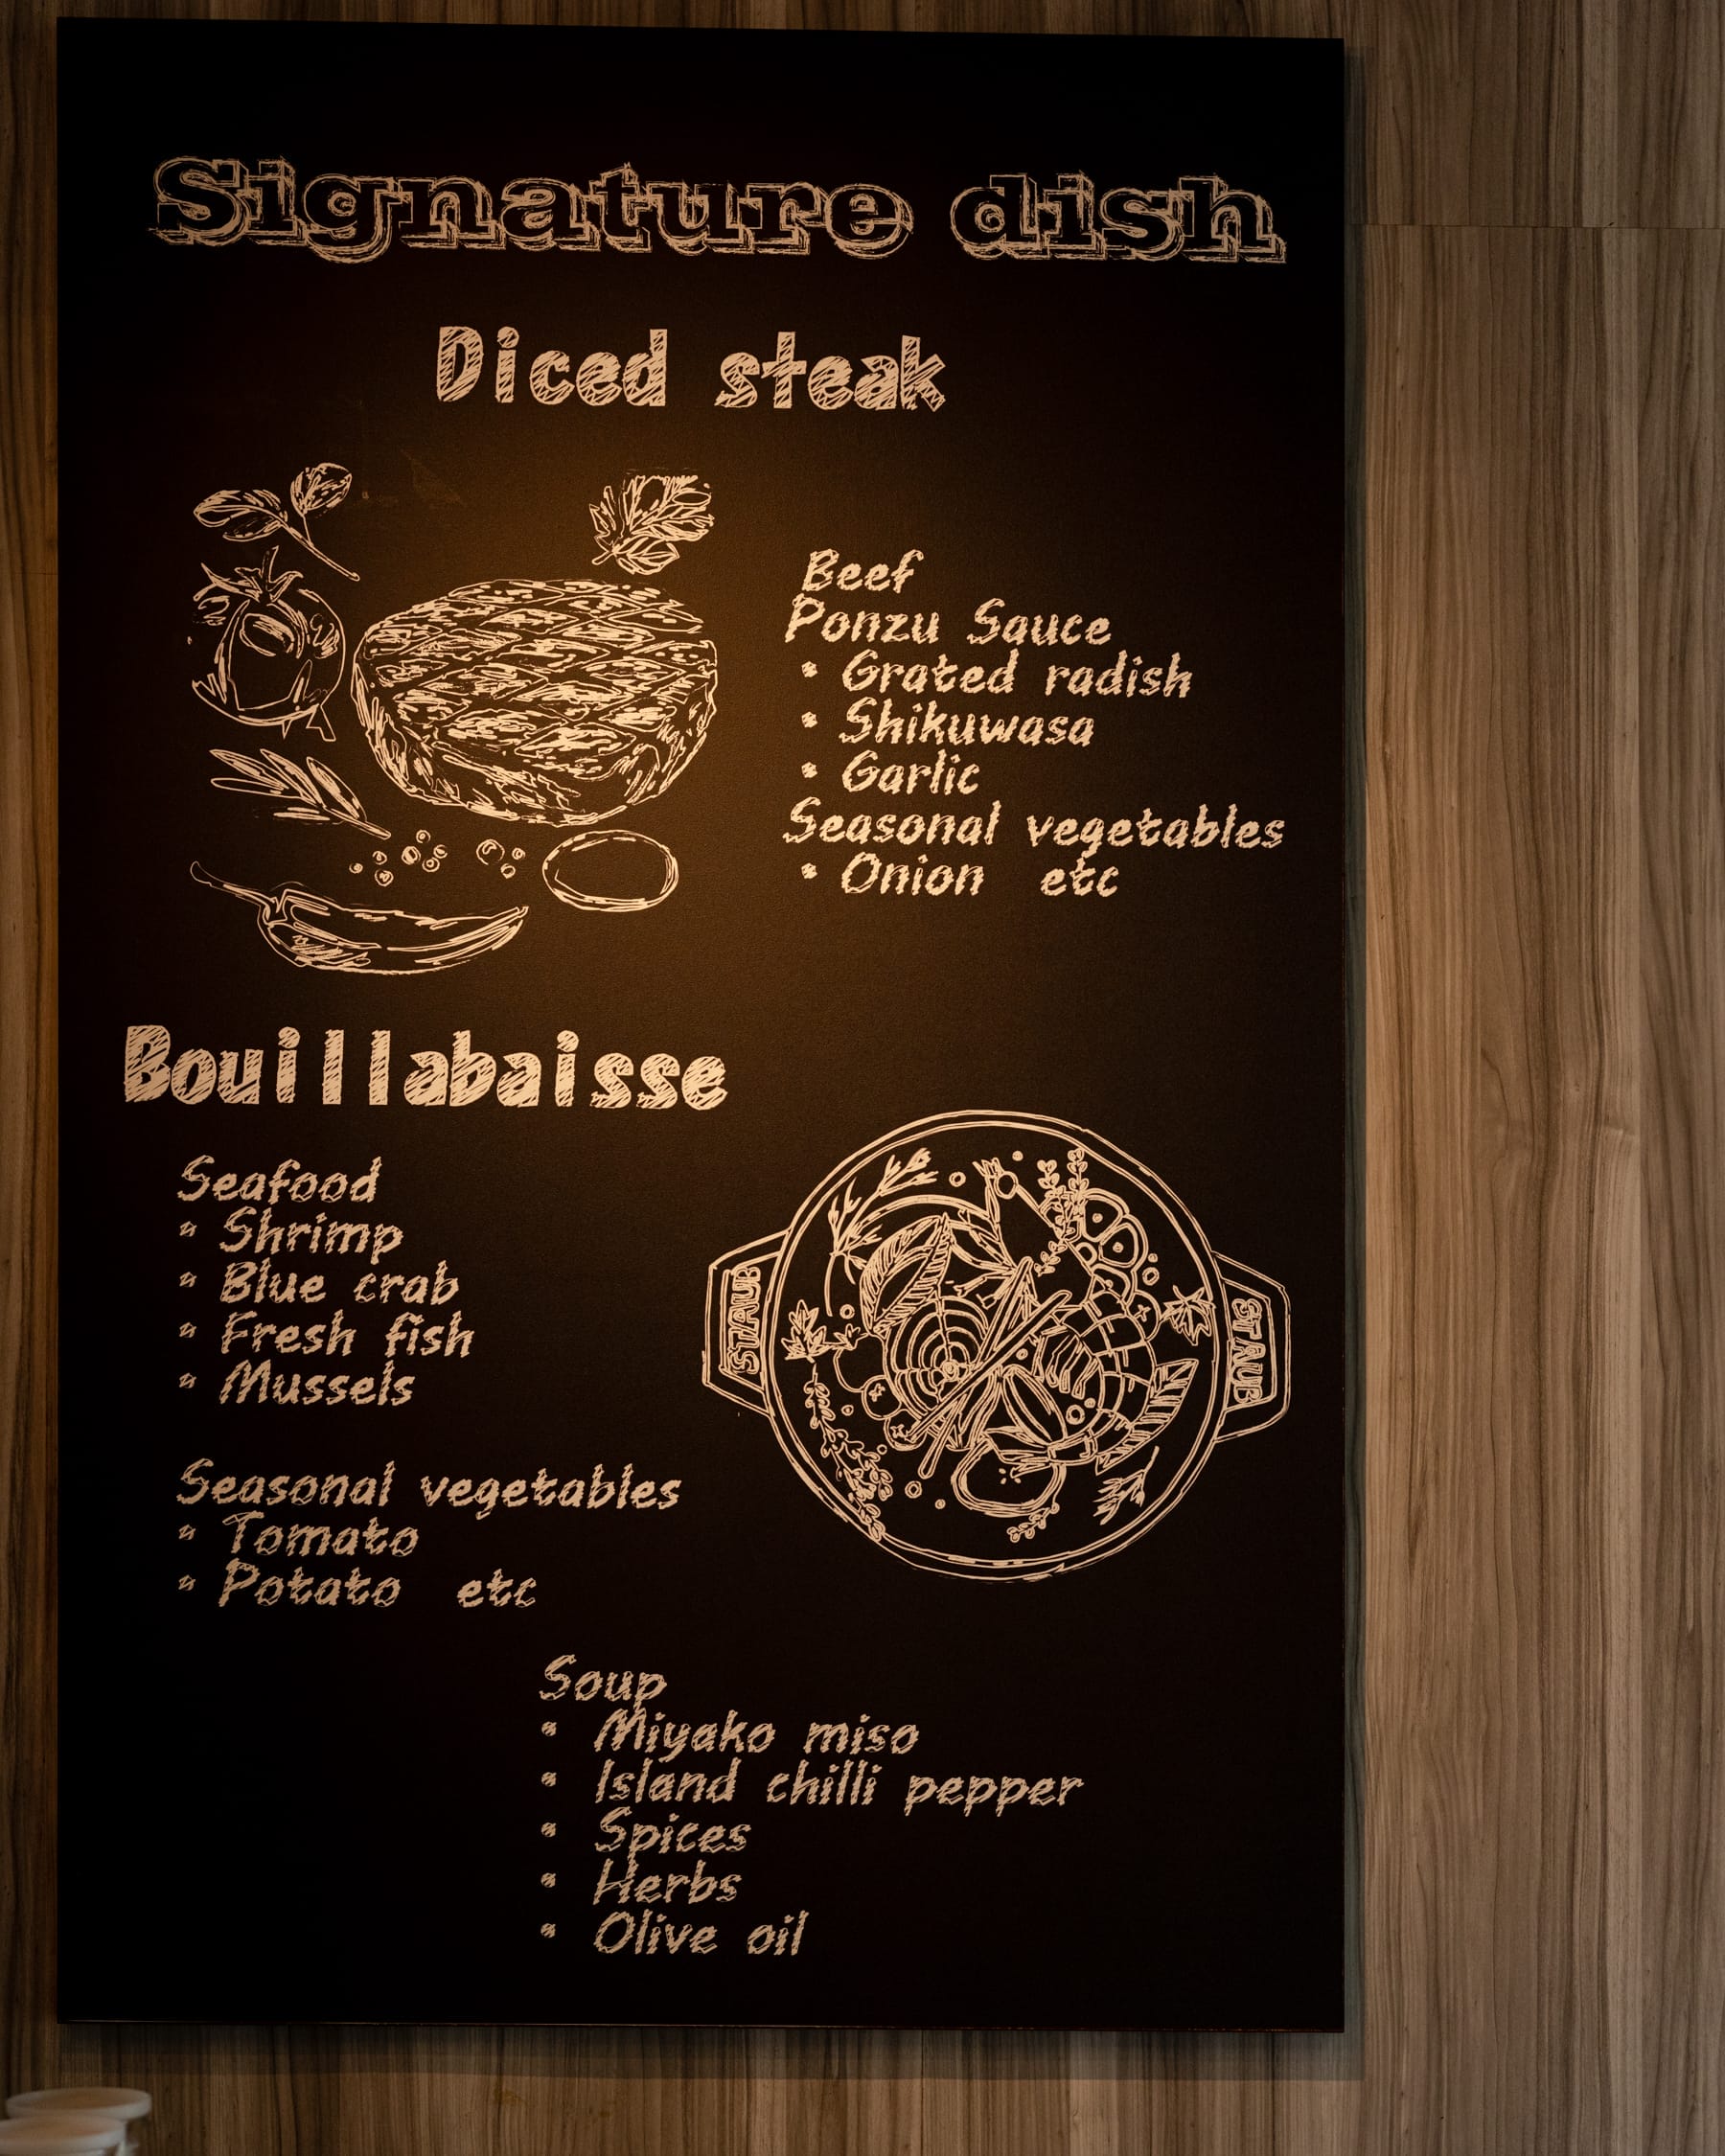 Signature dish
Diced steak
Beef
Ponzu Sauce
• Grated radish
• Shikuwasa
• Garlic
Seasonal vegetables
• Onion etc
Bouillabaisse
Seafood
• Shrimp
• Blue crab
• Fresh fish
• Mussels
STAUB
STAUB
Seasonal vegetables
• Tomato
• Potato etc
Soup
• Miyako miso
• Island chilli pepper
• Spices
• Herbs
• Olive oil